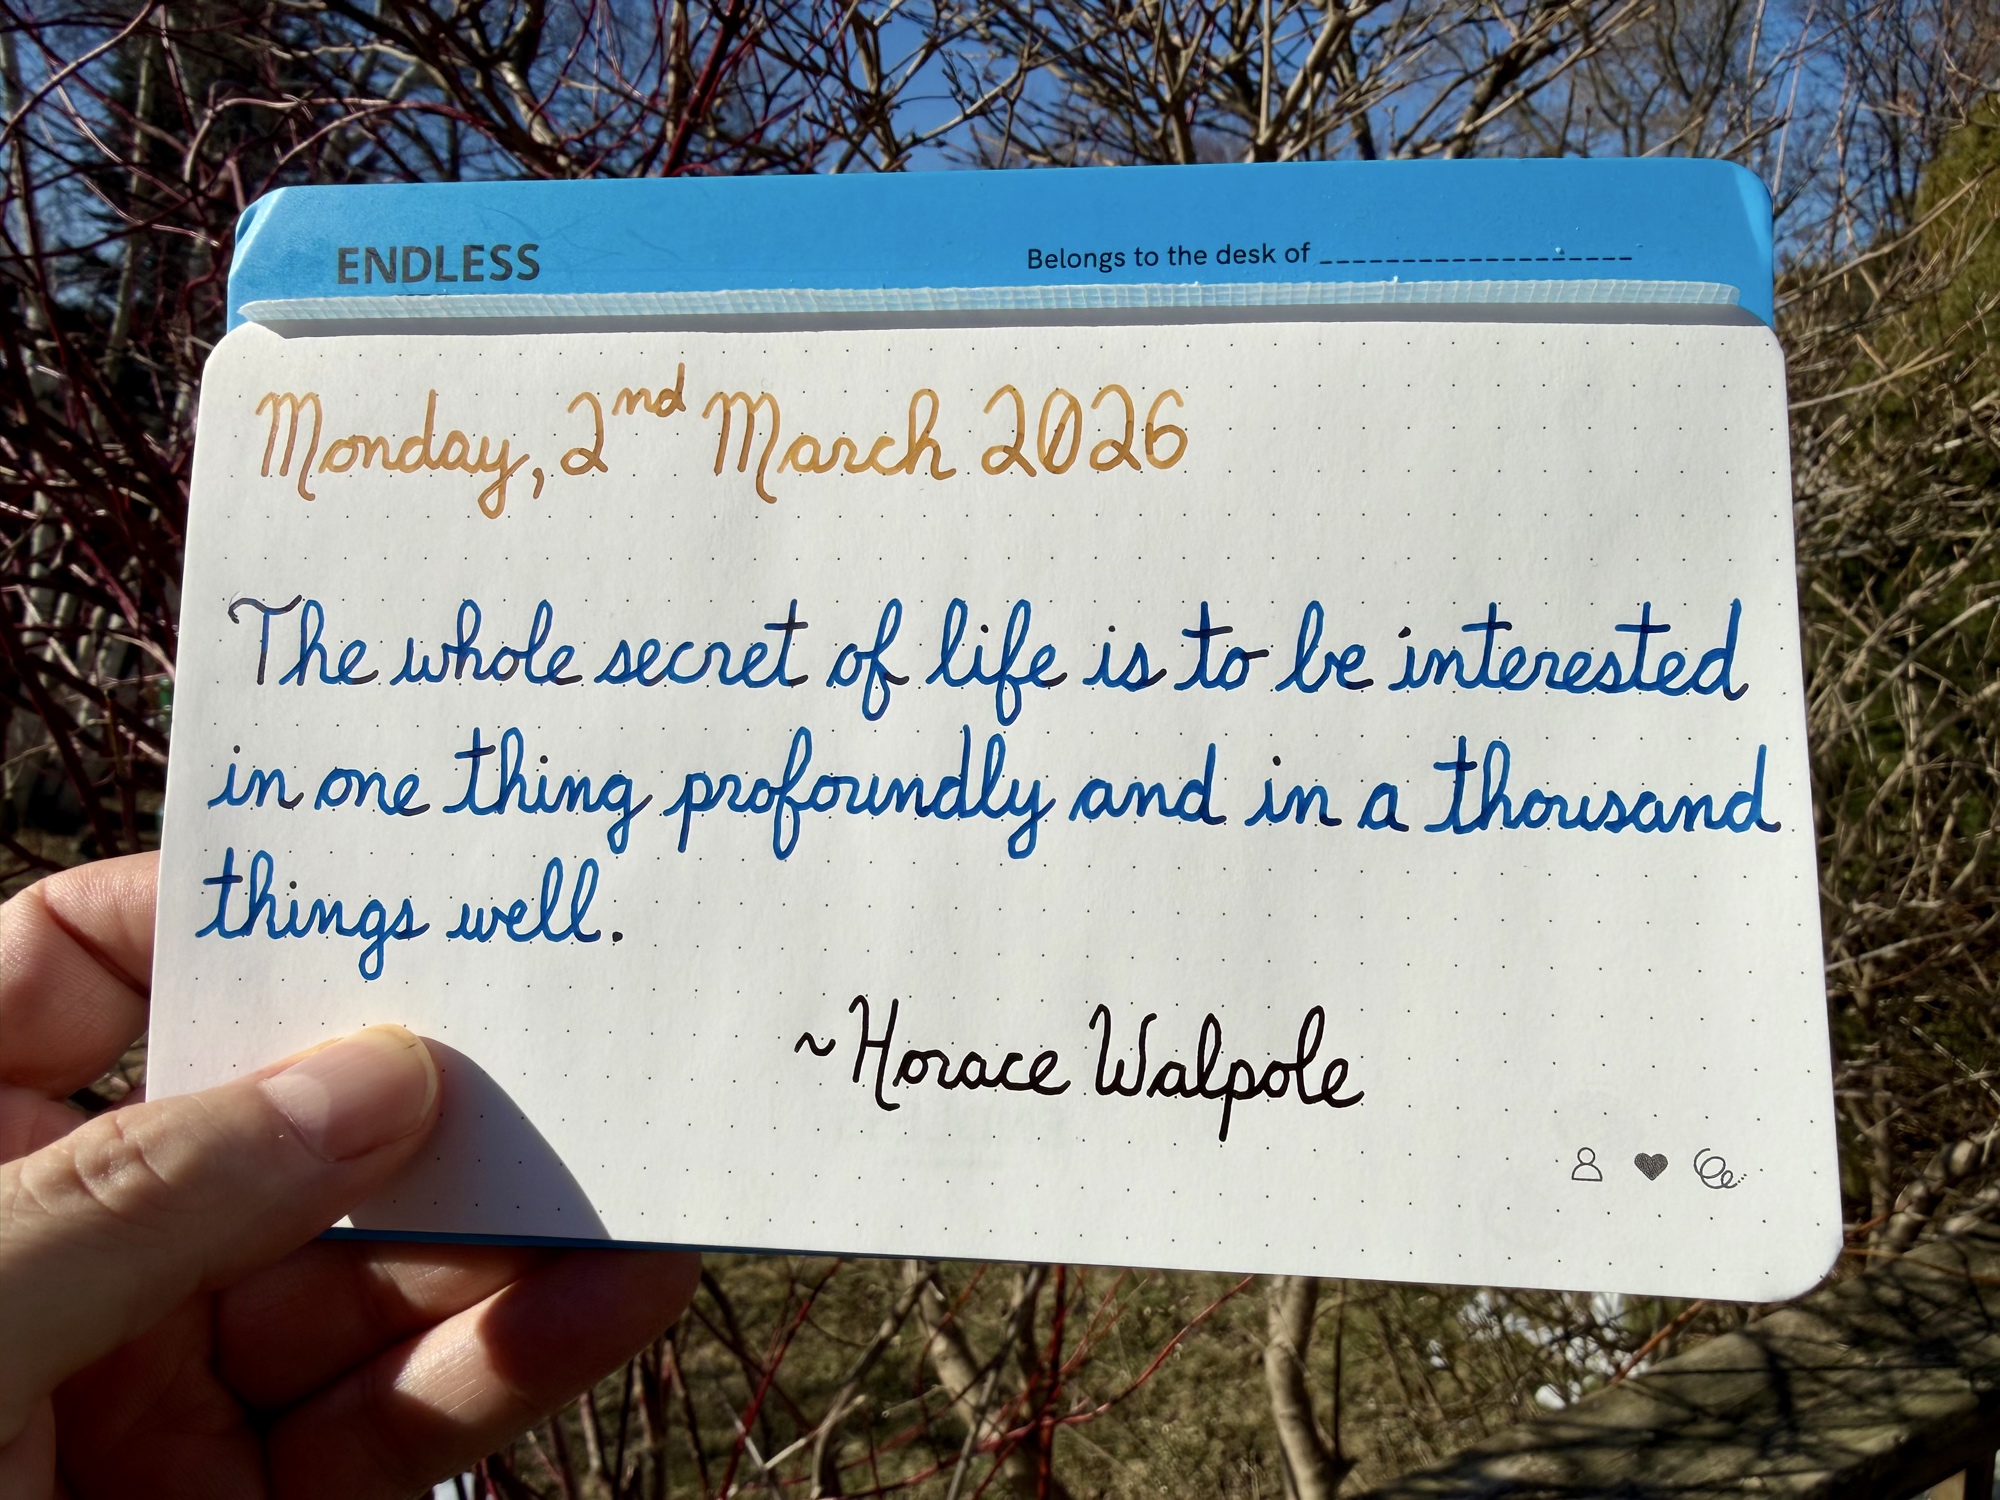 ENDLESS
Belongs to the desk of
Monday, 2nd March 2026
The whole secret of life is to be interested
in one thing profoundly and in a thousand
things well.
~Horace Walpole